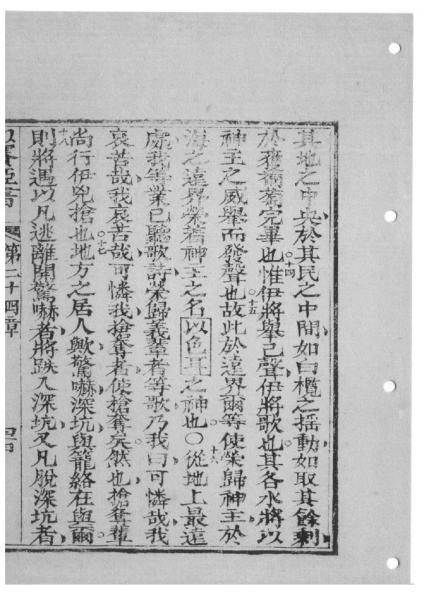 其地之中央於其民之中間如白欖之搖動如取其餘剩
於獲葡萄完畢也十四惟伊將舉己聲伊將歌也其各水將以
神主之威舉而發聲也十五故此於遠界爾等使榮歸神主於
海之遠界榮著神主之名以色耳之神也○十六從地上最遠
處我等業已聽歌詩榮歸義輩者等歌乃我曰可憐哉我
哀苦哉我哀苦哉可憐我搶奪者使搶奪矣然也搶奪輩
尚行伊兇搶也十七地方之居人歟驚嚇深坑與籠絡在與爾
十八則將遇以凡逃離鬧驚嚇者將跌入深坑又凡脫深坑者
書 第二十四章